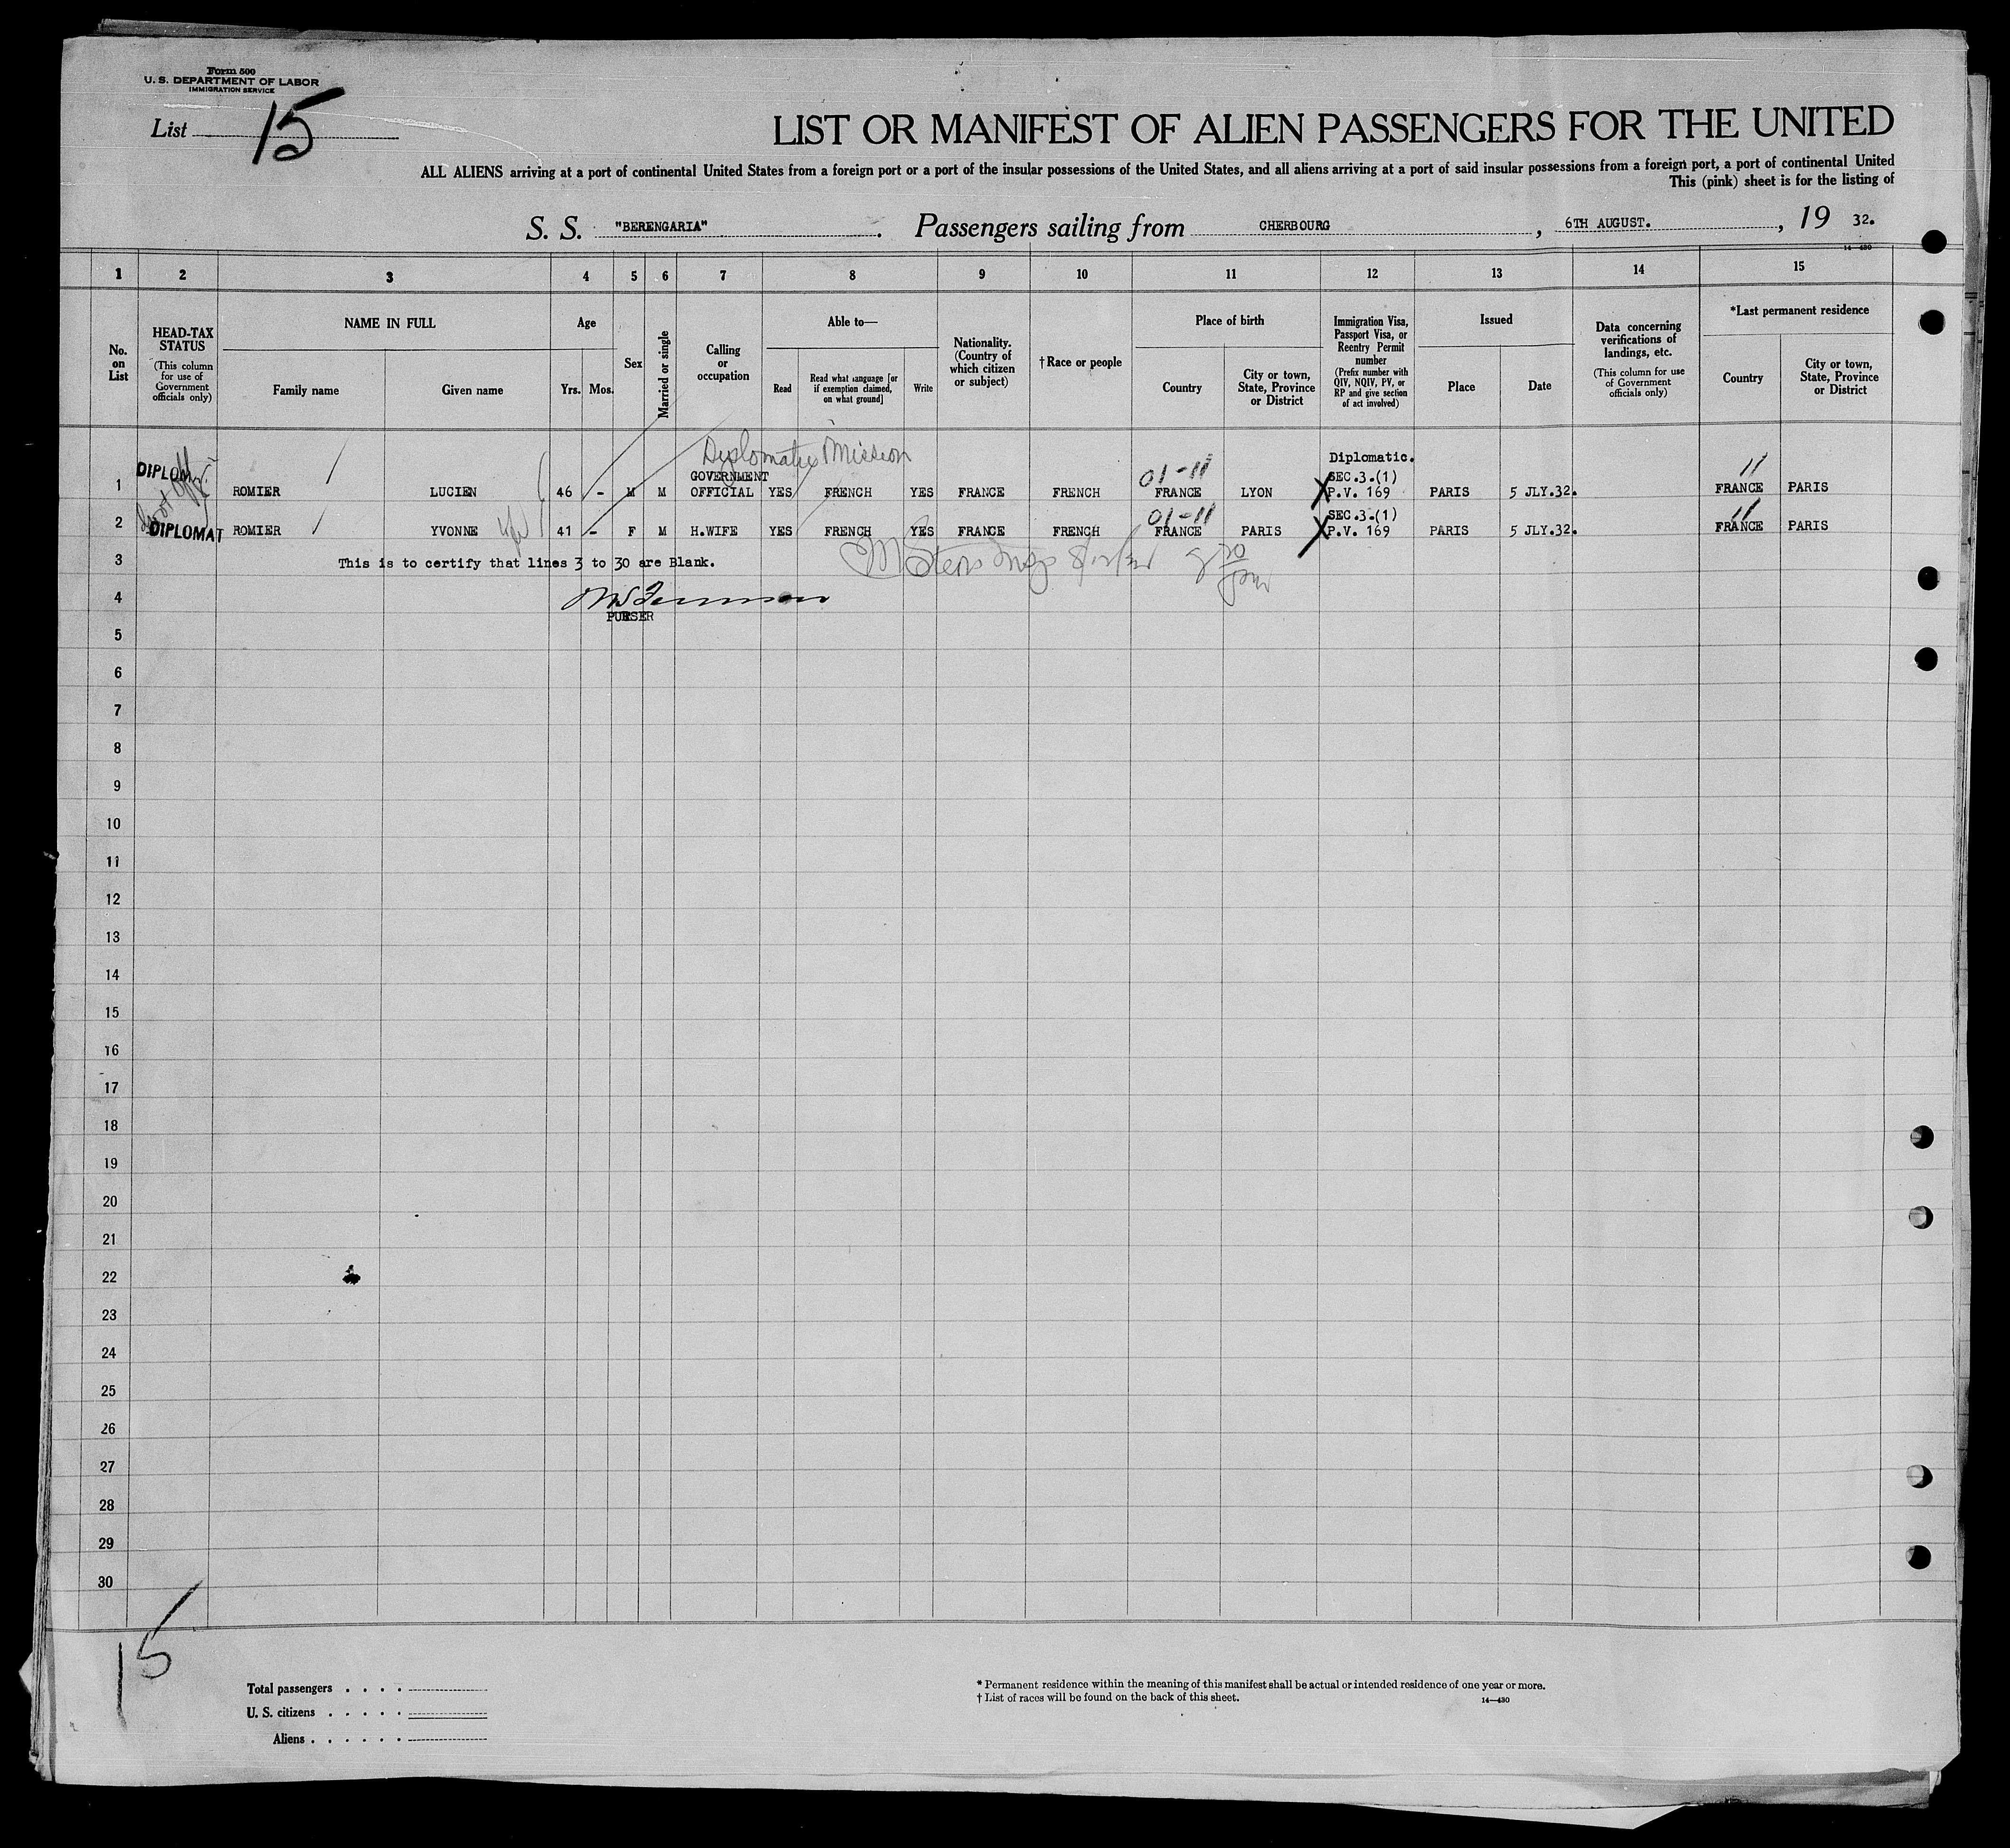 Form 500
U. S. DEPARTMENT OF LABOR
IMMIGRATION SERVICE
List 15
LIST OR MANIFEST OF ALIEN PASSENGERS FOR THE UNITED
ALL ALIENS arriving at a port of continental United States from a foreign port or a port of the insular possessions of the United States, and all aliens arriving at a port of said insular possessions from a foreign port, a port of continental United
This (pink) sheet is for the listing of
S. S. "BERENGARIA". Passengers sailing from CHERBOURG, 6TH AUGUST., 19 32.
14—430
1 2 3 4 5 6 7 8 9 10 11 12 13 14 15
No. on List
HEAD-TAX STATUS (This column for use of Government officials only)
NAME IN FULL
Family name
Given name
Age
Yrs. Mos.
Sex
Married or single
Calling or occupation
Able to—
Read
Read what language [or if exemption claimed, on what ground]
Write
Nationality. (Country of which citizen or subject)
†Race or people
Place of birth
Country
City or town, State, Province or District
Immigration Visa, Passport Visa, or Reentry Permit number (Prefix number with QIV, NQIV, PV, or RP and give section of act involved)
Issued
Place
Date
Data concerning verifications of landings, etc. (This column for use of Government officials only)
*Last permanent residence
Country
City or town, State, Province or District
Diplomatic Mission
Diplomatic.
DIPLOM
01-11
11
GOVERNMENT
SEC.3.(1)
1 ROMIER LUCIEN 46 - M M OFFICIAL YES FRENCH YES FRANCE FRENCH FRANCE LYON P.V. 169 PARIS 5 JLY.32. FRANCE PARIS
01-11
SEC.3.(1)
11
2 DIPLOMAT ROMIER YVONNE 41 - F M H.WIFE YES FRENCH YES FRANCE FRENCH FRANCE PARIS X P.V. 169 PARIS 5 JLY.32. FRANCE PARIS
3 This is to certify that lines 3 to 30 are Blank.
4
PURSER
5
6
7
8
9
10
11
12
13
14
15
16
17
18
19
20
21
22
23
24
25
26
27
28
29
30
15
Total passengers . . . .
U. S. citizens . . . . .
Aliens . . . . . .
* Permanent residence within the meaning of this manifest shall be actual or intended residence of one year or more.
† List of races will be found on the back of this sheet.
14—430